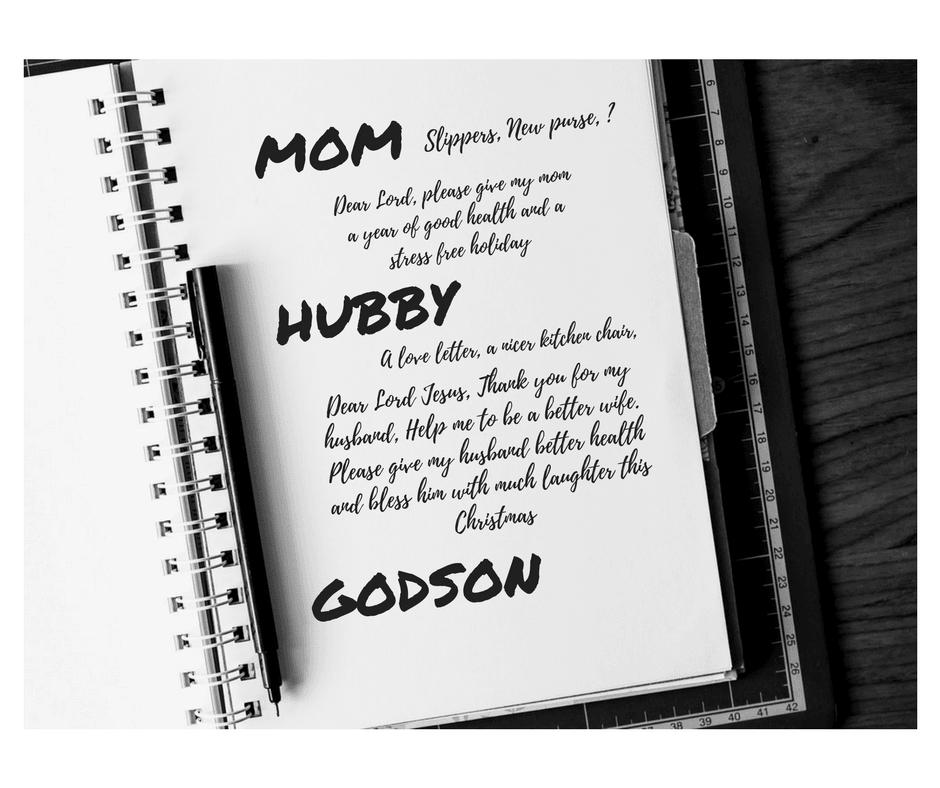 MOM Slippers, New purse, ?
Dear Lord, please give my mom
a year of good health and a
stress free holiday
HUBBY
A love letter, a nicer kitchen chair,
Dear Lord Jesus, Thank you for my
husband, Help me to be a better wife.
Please give my husband better health
and bless him with much laughter this
Christmas
GODSON
6
7
8
9
10
11
12
13
14
15
16
17
18
19
20
21
22
23
24
25
26
38 39 40 41 42